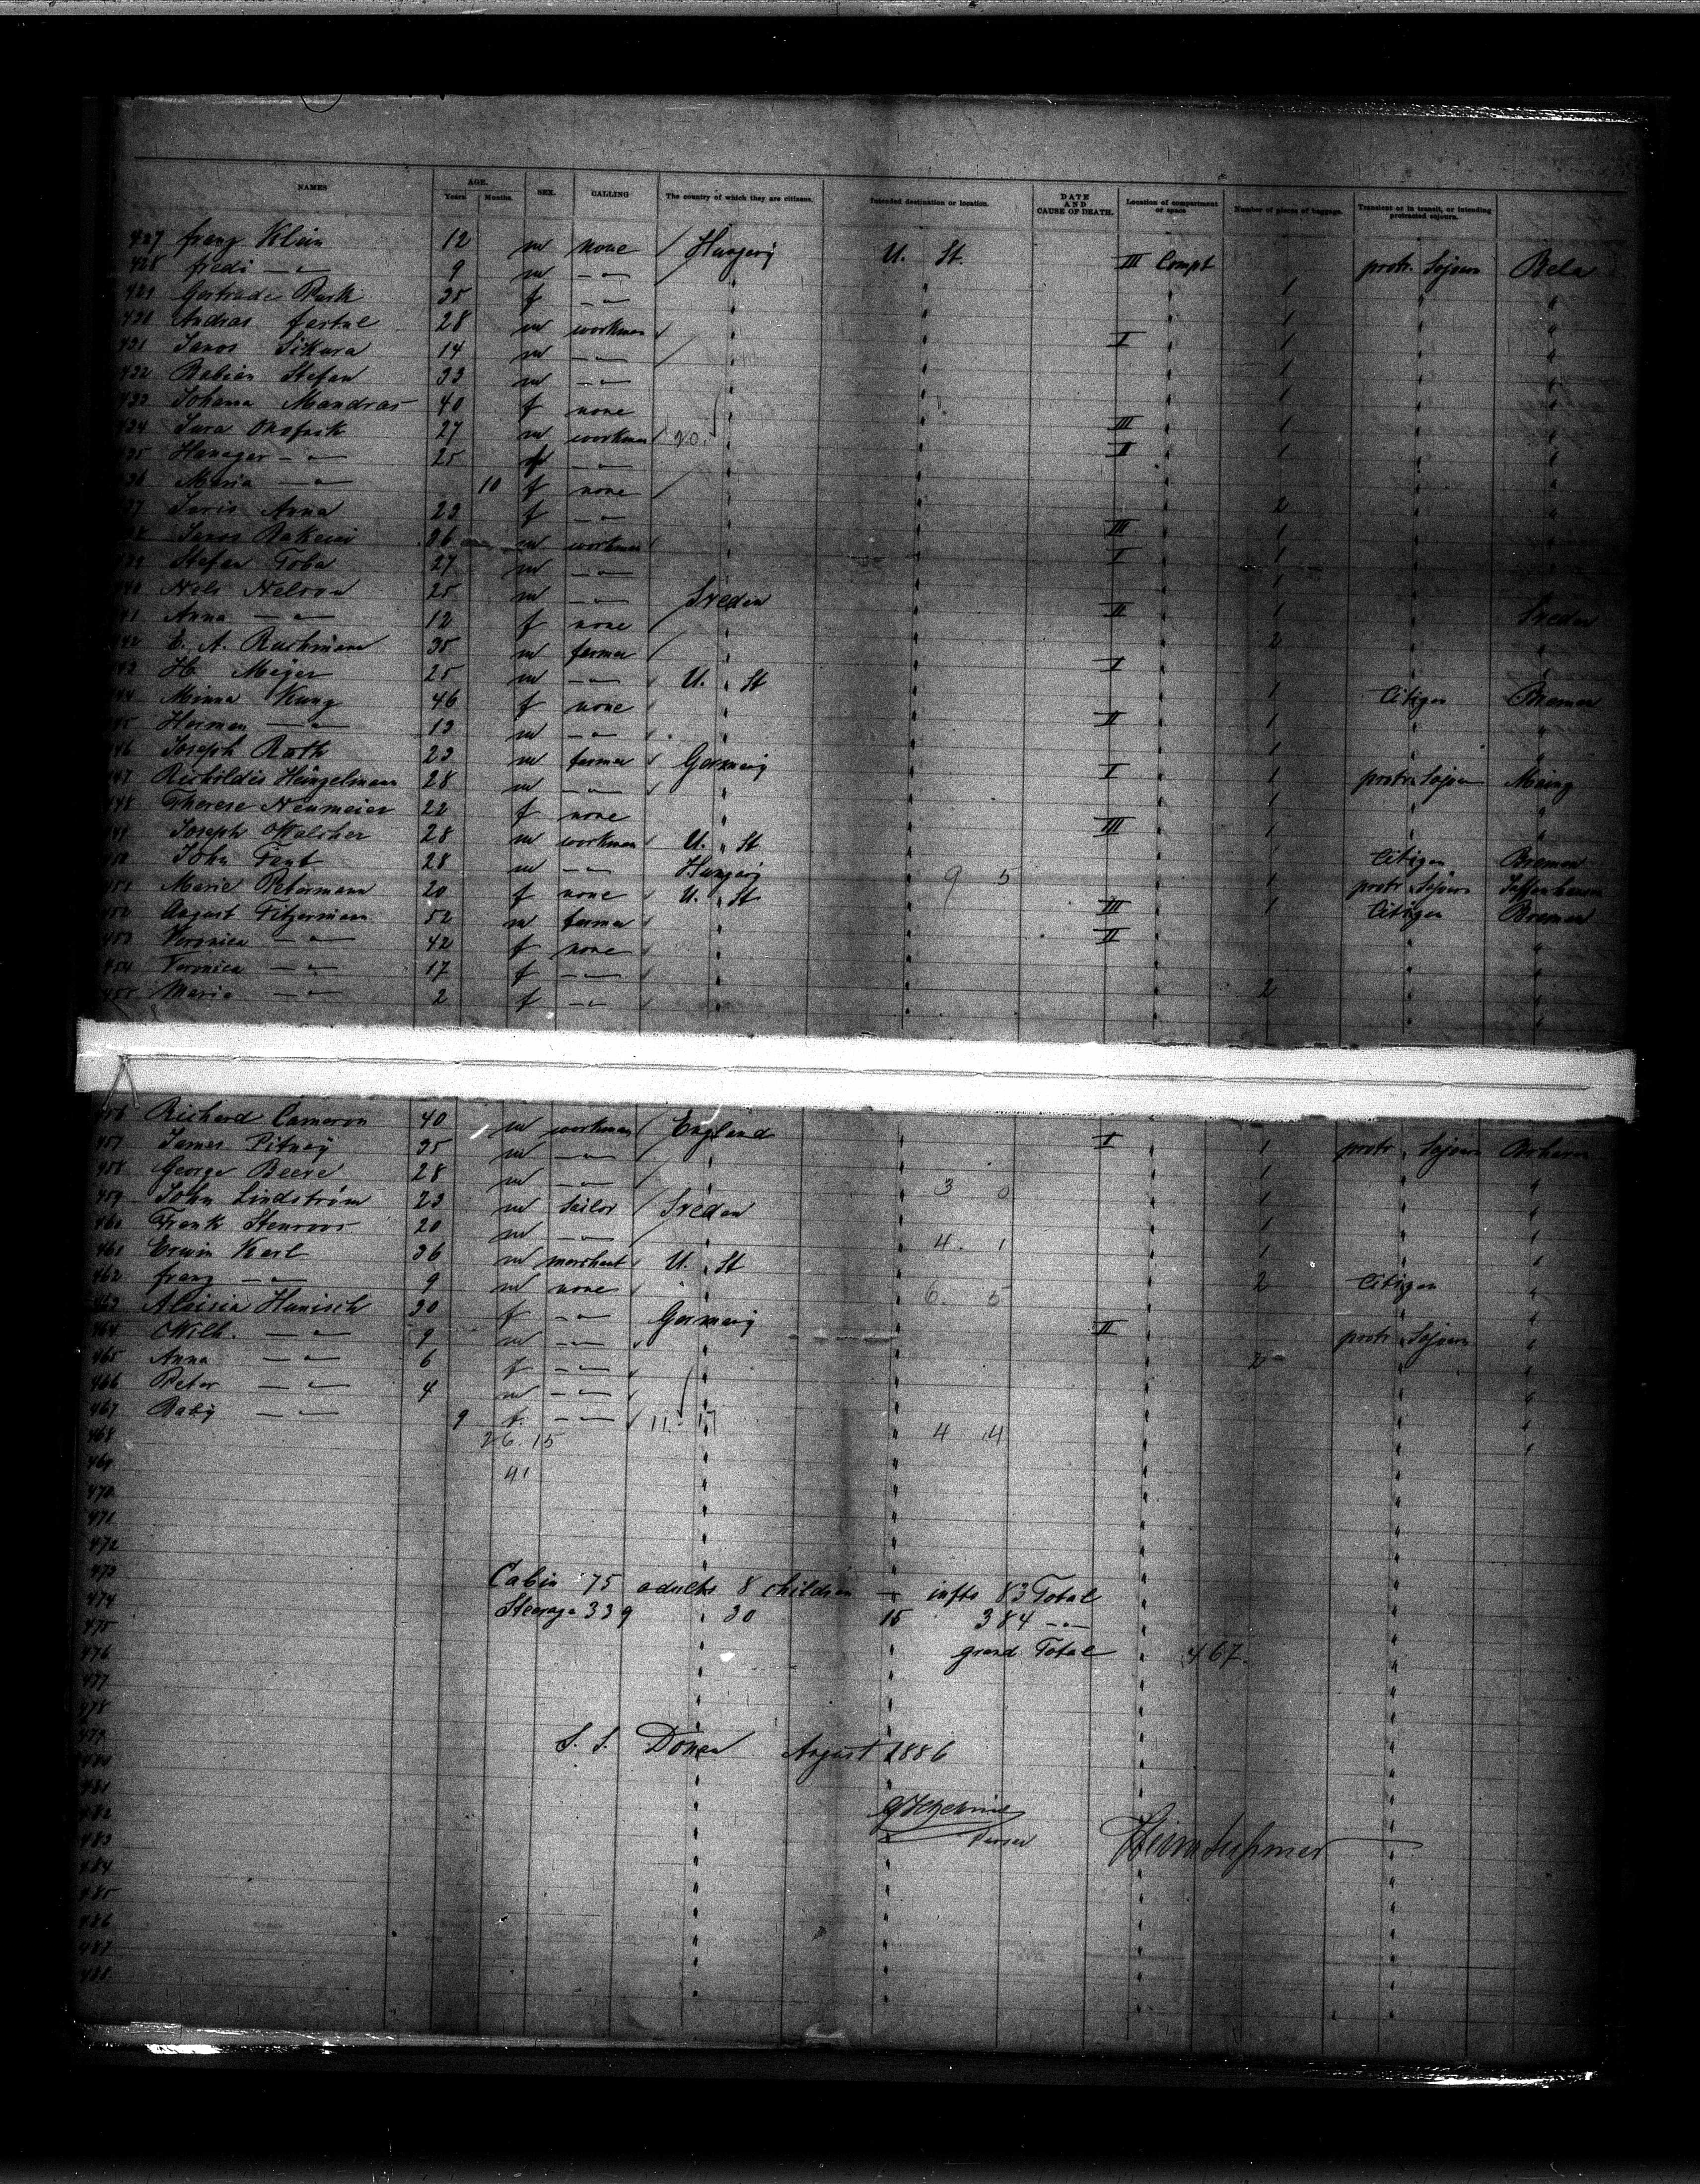 NAMES AGE. Years Months. SEX. CALLING The country of which they are citizens. Intended destination or location. DATE AND CAUSE OF DEATH. Location of compartment or space Number of pieces of baggage. Transient or in transit, or intending protracted sojourn.
427 franz Klein 12 m none / Hungary U. St. III Compt protr. Sojourn Bela
428 fredi —"— 9 m —"— / " " 1 " "
429 Gertrude 35 f —"— " " 1 " "
430 Andras 28 m workman " " I 1 " "
431 Janos Sikura 14 m —"— / " " 1 " "
432 Babian Stefan 33 m —"— " " 1 " "
433 Johana Mandras 40 f none " " III 1 " "
434 Jura 27 m workman 20. " " II 1 " "
435 —"— 25 f —"— " " " "
436 Maria —"— 10 f none / " " 2 " "
437 Juris Anna 23 f —"— " " III 1 " "
438 Janos 26 m workman " " I 1 " "
439 Stefan Toba 27 m —"— " " 1 " "
440 Nels Nelson 25 m —"— Sveden " II 1 " Sveden
441 Anna —"— 12 f none / " " 2 " "
442 E. A. 35 m farmer / " " I " "
443 H. Meyer 25 m —"— U. St " 1 Citizen Bremen
444 Minna Kung 46 f none " " II 1 " "
445 Herman —"— 13 m —"— " " 1 " "
446 Joseph Roth 23 m farmer Germany " I 1 protr. Sojourn Mainz
447 Heinzelmann 28 m —"— " " 1 " "
448 Therese Neumeier 22 f none " " III 1 " "
449 Joseph Walcher 28 m workman U. St " Citizen Bremen
450 John 28 m —"— Hungary 9 5 1 protr. Sojourn
451 Marie Petermann 20 f none U. St " III 1 Citizen Bremen
452 August 52 m farmer " " II " "
453 Veronica —"— 42 f none " " " "
454 Veronica —"— 17 f —"— " " 2 " "
455 Maria —"— 2 f —"— " " " "
456 Richard Cameron 40 m workman / England " I 1 protr. Sojourn
457 James Pitney 35 m —"— " " 1 " "
458 George Beere 28 m —"— / " 3 0 1 " "
459 John Lindström 23 m sailor / Sveden " 1 " "
460 Frank Stenroos 20 m —"— / " 4. 1 1 " "
461 Erwin Karl 36 m merchant U. St " 2 Citizen "
462 franz —"— 9 m none " 6. 5 " "
463 Aloisia Hanisch 30 f —"— Germany " II protr. Sojourn "
464 Wilh. —"— 9 m —"— " " 2 " "
465 Anna —"— 6 f —"— " " " "
466 Peter —"— 4 m —"— " " " "
467 Baby —"— 9 f. —"— 11. 17 4 14 " "
468 26. 15
469 41
470
471
472
473 Cabin 75 adults 8 children — infts 83 Total
474 Steerage 339 " 30 15 384 —"—
475
476 grand Total 467.
477
478
479 S. S. Donau August 1886
480
481
482
483
484
485
486
487
488